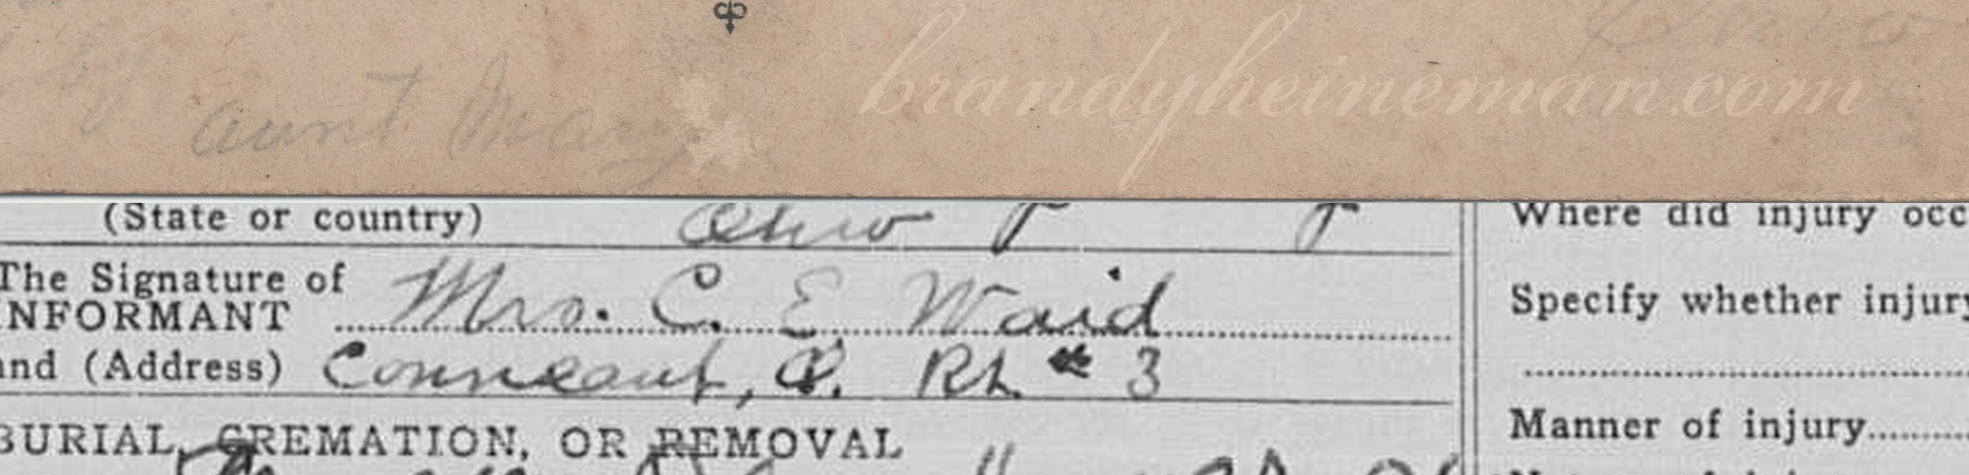 by
aunt Mary
brandyheineman.com
(State or country) Ohio
Where did injury occ
The Signature of
INFORMANT Mrs. C. E Waid
Specify whether injury
and (Address) Conneaut, O. Rt # 3
BURIAL, CREMATION, OR REMOVAL
Manner of injury